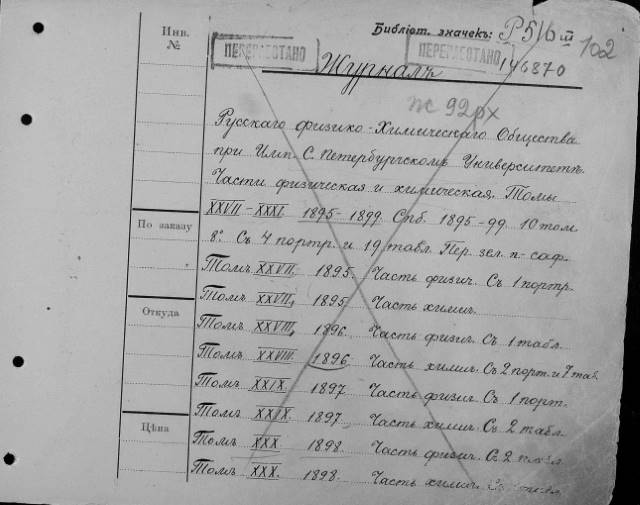 Инв.
№
Библіот. значекъ: Р 5/6 III
102
ПЕРЕРАБОТАНО
ПЕРЕРАБОТАНО
146870
Журналъ
Ж 92рх
Русскаго физико-Химическаго Общества
при Имп. С. Петербургскомъ Университетѣ.
Части физическая и химическая. Томы
XXVII–XXXI. 1895–1899. Спб. 1895–99. 10 том
8º. Съ 4 портр. и 19 табл. Пер. зел. п-саф.
По заказу
Томъ XXVII, 1895. Часть физич. Съ 1 портр.
Томъ XXVII, 1895. Часть химич.
Откуда
Томъ XXVIII, 1896. Часть физич. Съ 1 табл.
Томъ XXVIII. 1896. Часть химич. Съ 2 порт. и 7 таб.
Томъ XXIX. 1897 Часть физич. Съ 1 порт.
Томъ XXIX. 1897. Часть химич. Съ 2 табл.
Цѣна
Томъ XXX 1898. Часть физич. Съ 2 табл.
Томъ XXX. 1898. Часть химич.